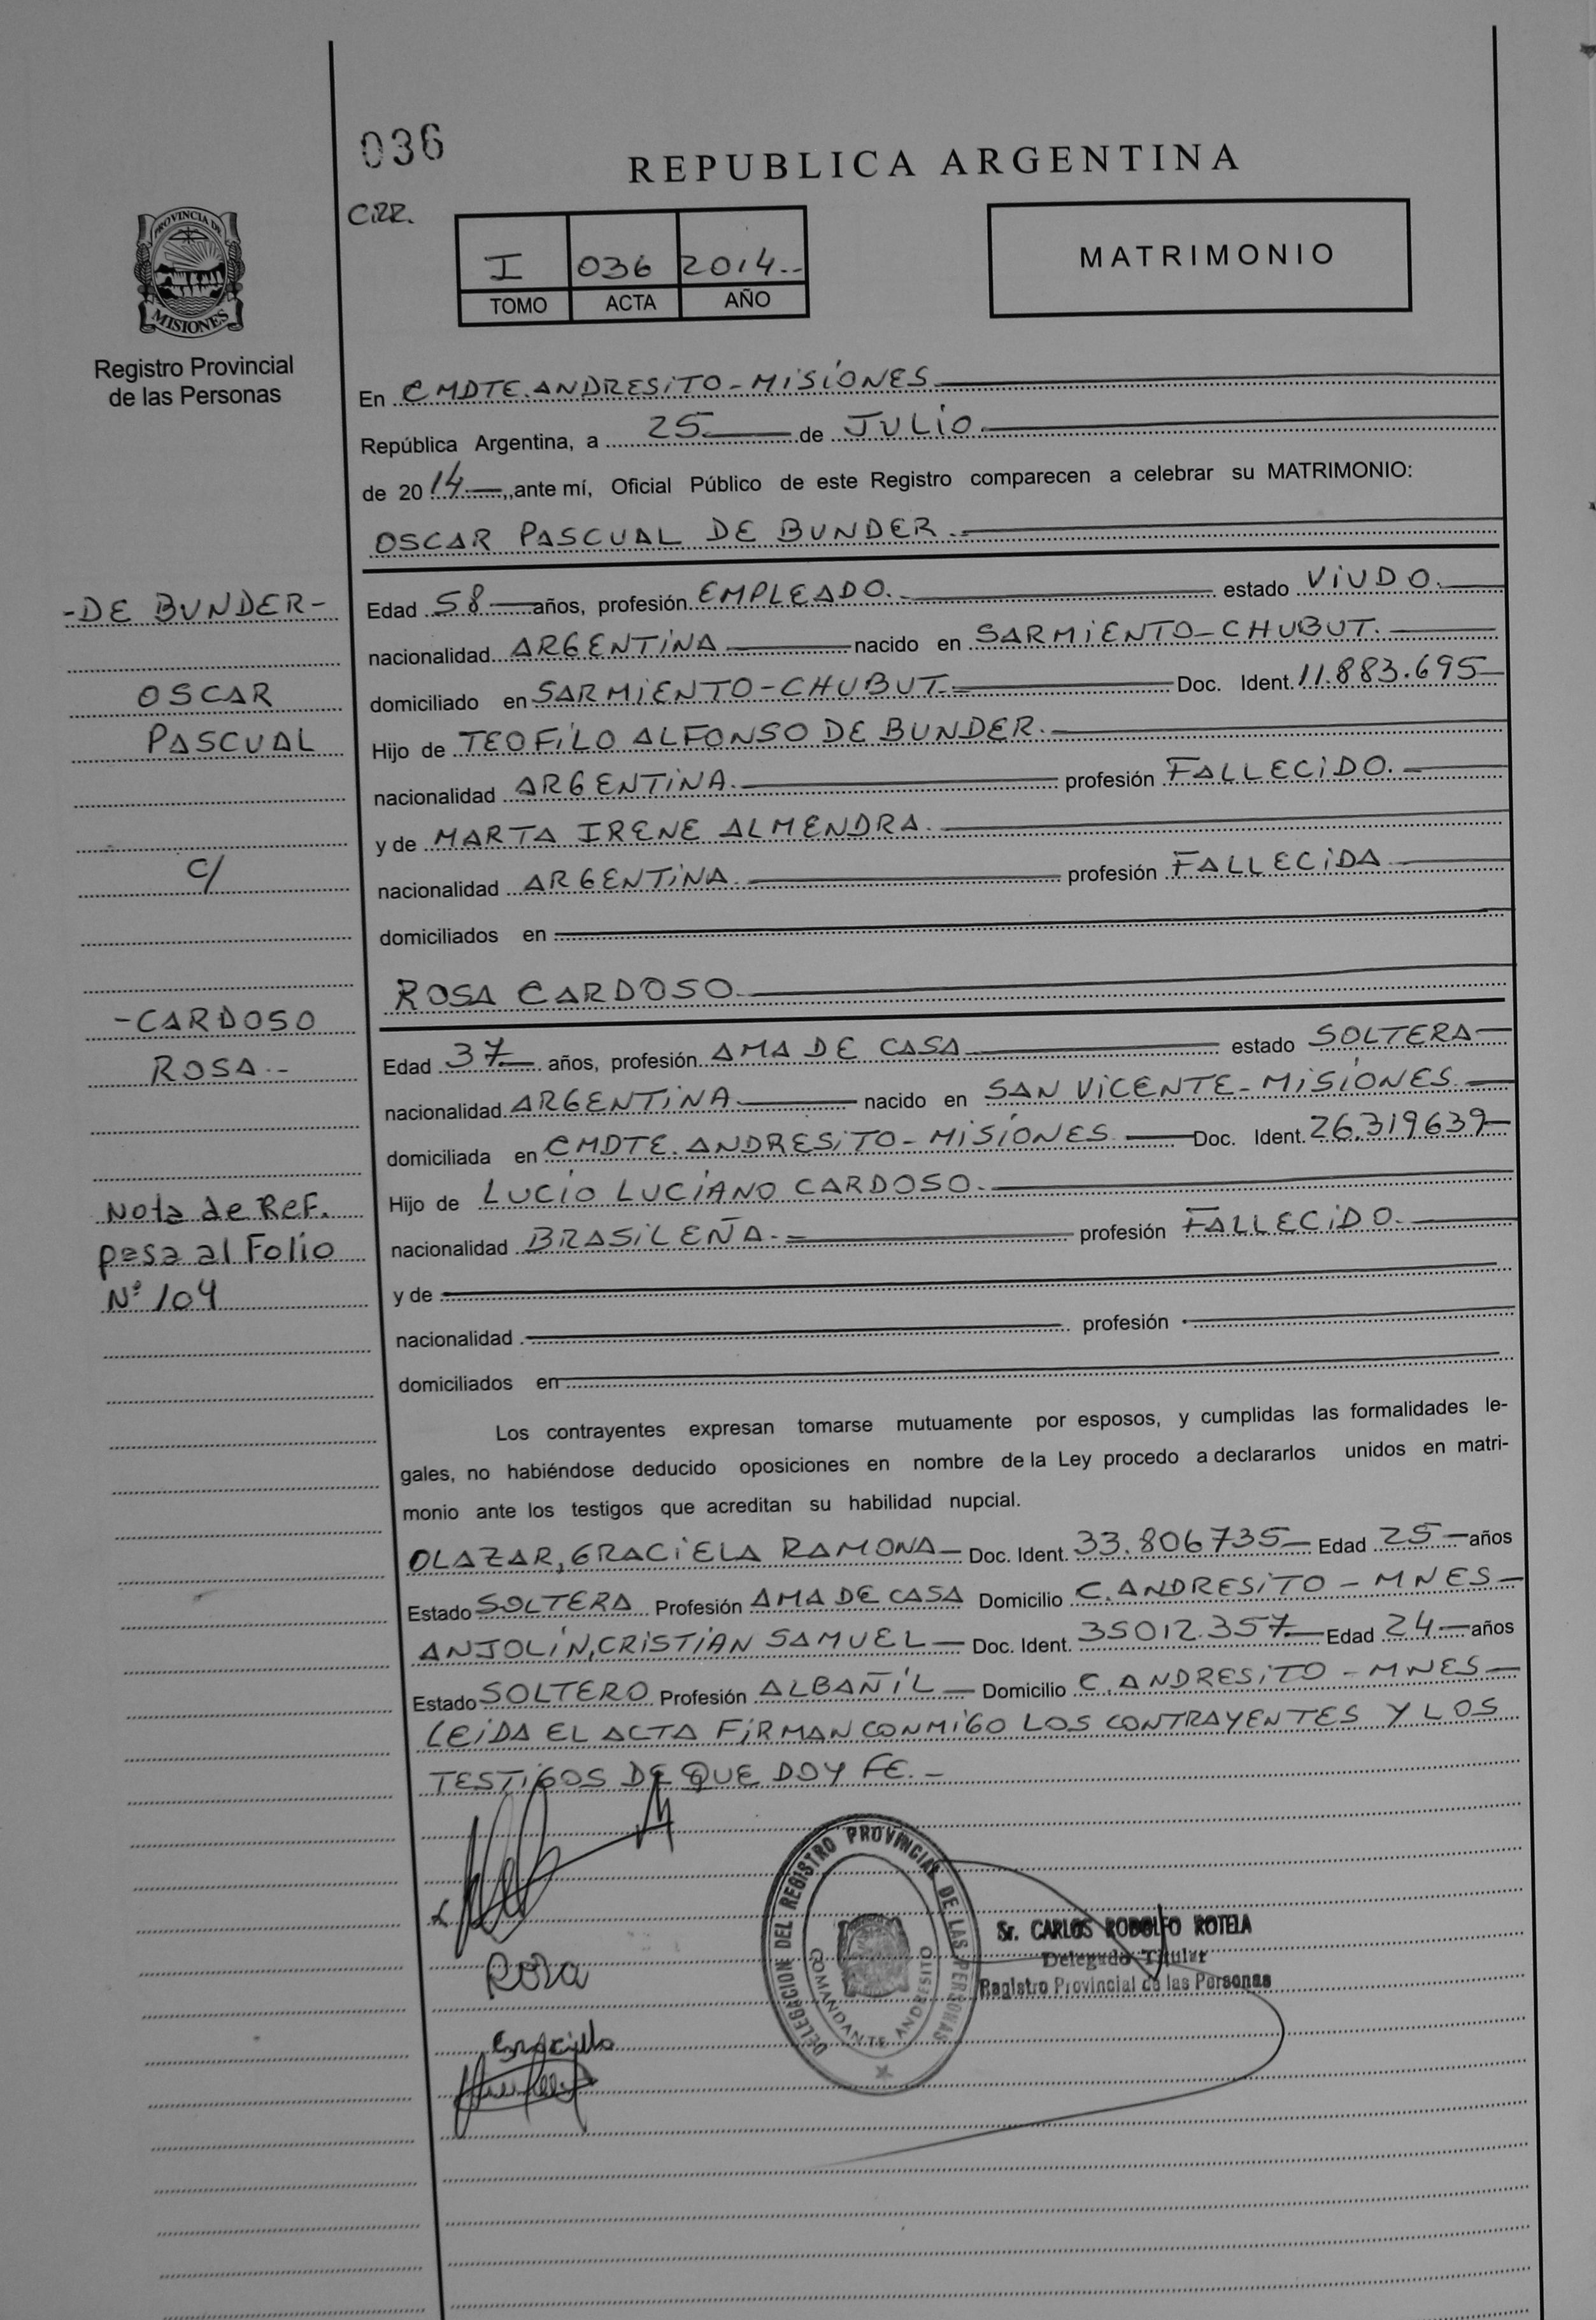 036
REPUBLICA ARGENTINA
PROVINCIA DE
MISIONES
Registro Provincial
de las Personas
I 036 2014.-
TOMO ACTA AÑO
MATRIMONIO
En CMDTE. ANDRESITO - MISIONES
República Argentina, a 25 de JULIO.
de 2014, ante mí, Oficial Público de este Registro comparecen a celebrar su MATRIMONIO:
OSCAR PASCUAL DE BUNDER.
-DE BUNDER-
OSCAR
PASCUAL
C/
-CARDOSO
ROSA.-
Nota de Ref.
pasa al Folio
Nº 104
Edad 58 años, profesión EMPLEADO. estado VIUDO.
nacionalidad ARGENTINA nacido en SARMIENTO - CHUBUT.
domiciliado en SARMIENTO - CHUBUT. Doc. Ident. 11.883.695
Hijo de TEOFILO ALFONSO DE BUNDER.
nacionalidad ARGENTINA. profesión FALLECIDO.
y de MARTA IRENE ALMENDRA.
nacionalidad ARGENTINA. profesión FALLECIDA
domiciliados en
ROSA CARDOSO
Edad 37 años, profesión AMA DE CASA estado SOLTERA
nacionalidad ARGENTINA nacido en SAN VICENTE - MISIONES
domiciliada en CMDTE. ANDRESITO - MISIONES Doc. Ident. 26.319639
Hijo de LUCIO LUCIANO CARDOSO.
nacionalidad BRASILEÑA. profesión FALLECIDO.
y de
nacionalidad profesión
domiciliados en
Los contrayentes expresan tomarse mutuamente por esposos, y cumplidas las formalidades le-
gales, no habiéndose deducido oposiciones en nombre de la Ley procedo a declararlos unidos en matri-
monio ante los testigos que acreditan su habilidad nupcial.
OLAZAR, GRACIELA RAMONA Doc. Ident. 33.806735 Edad 25 años
Estado SOLTERA Profesión AMA DE CASA Domicilio C. ANDRESITO - MNES
ANJOLIN, CRISTIAN SAMUEL Doc. Ident. 35012.357 Edad 24 años
Estado SOLTERO Profesión ALBAÑIL Domicilio C. ANDRESITO - MNES
LEIDA EL ACTA FIRMAN CONMIGO LOS CONTRAYENTES Y LOS
TESTIGOS DE QUE DOY FE.-
Rosa
DELEGACION DEL REGISTRO PROVINCIAL DE LAS PERSONAS
COMANDANTE ANDRESITO
Sr. CARLOS RODOLFO ROTELA
Delegado Titular
Registro Provincial de las Personas